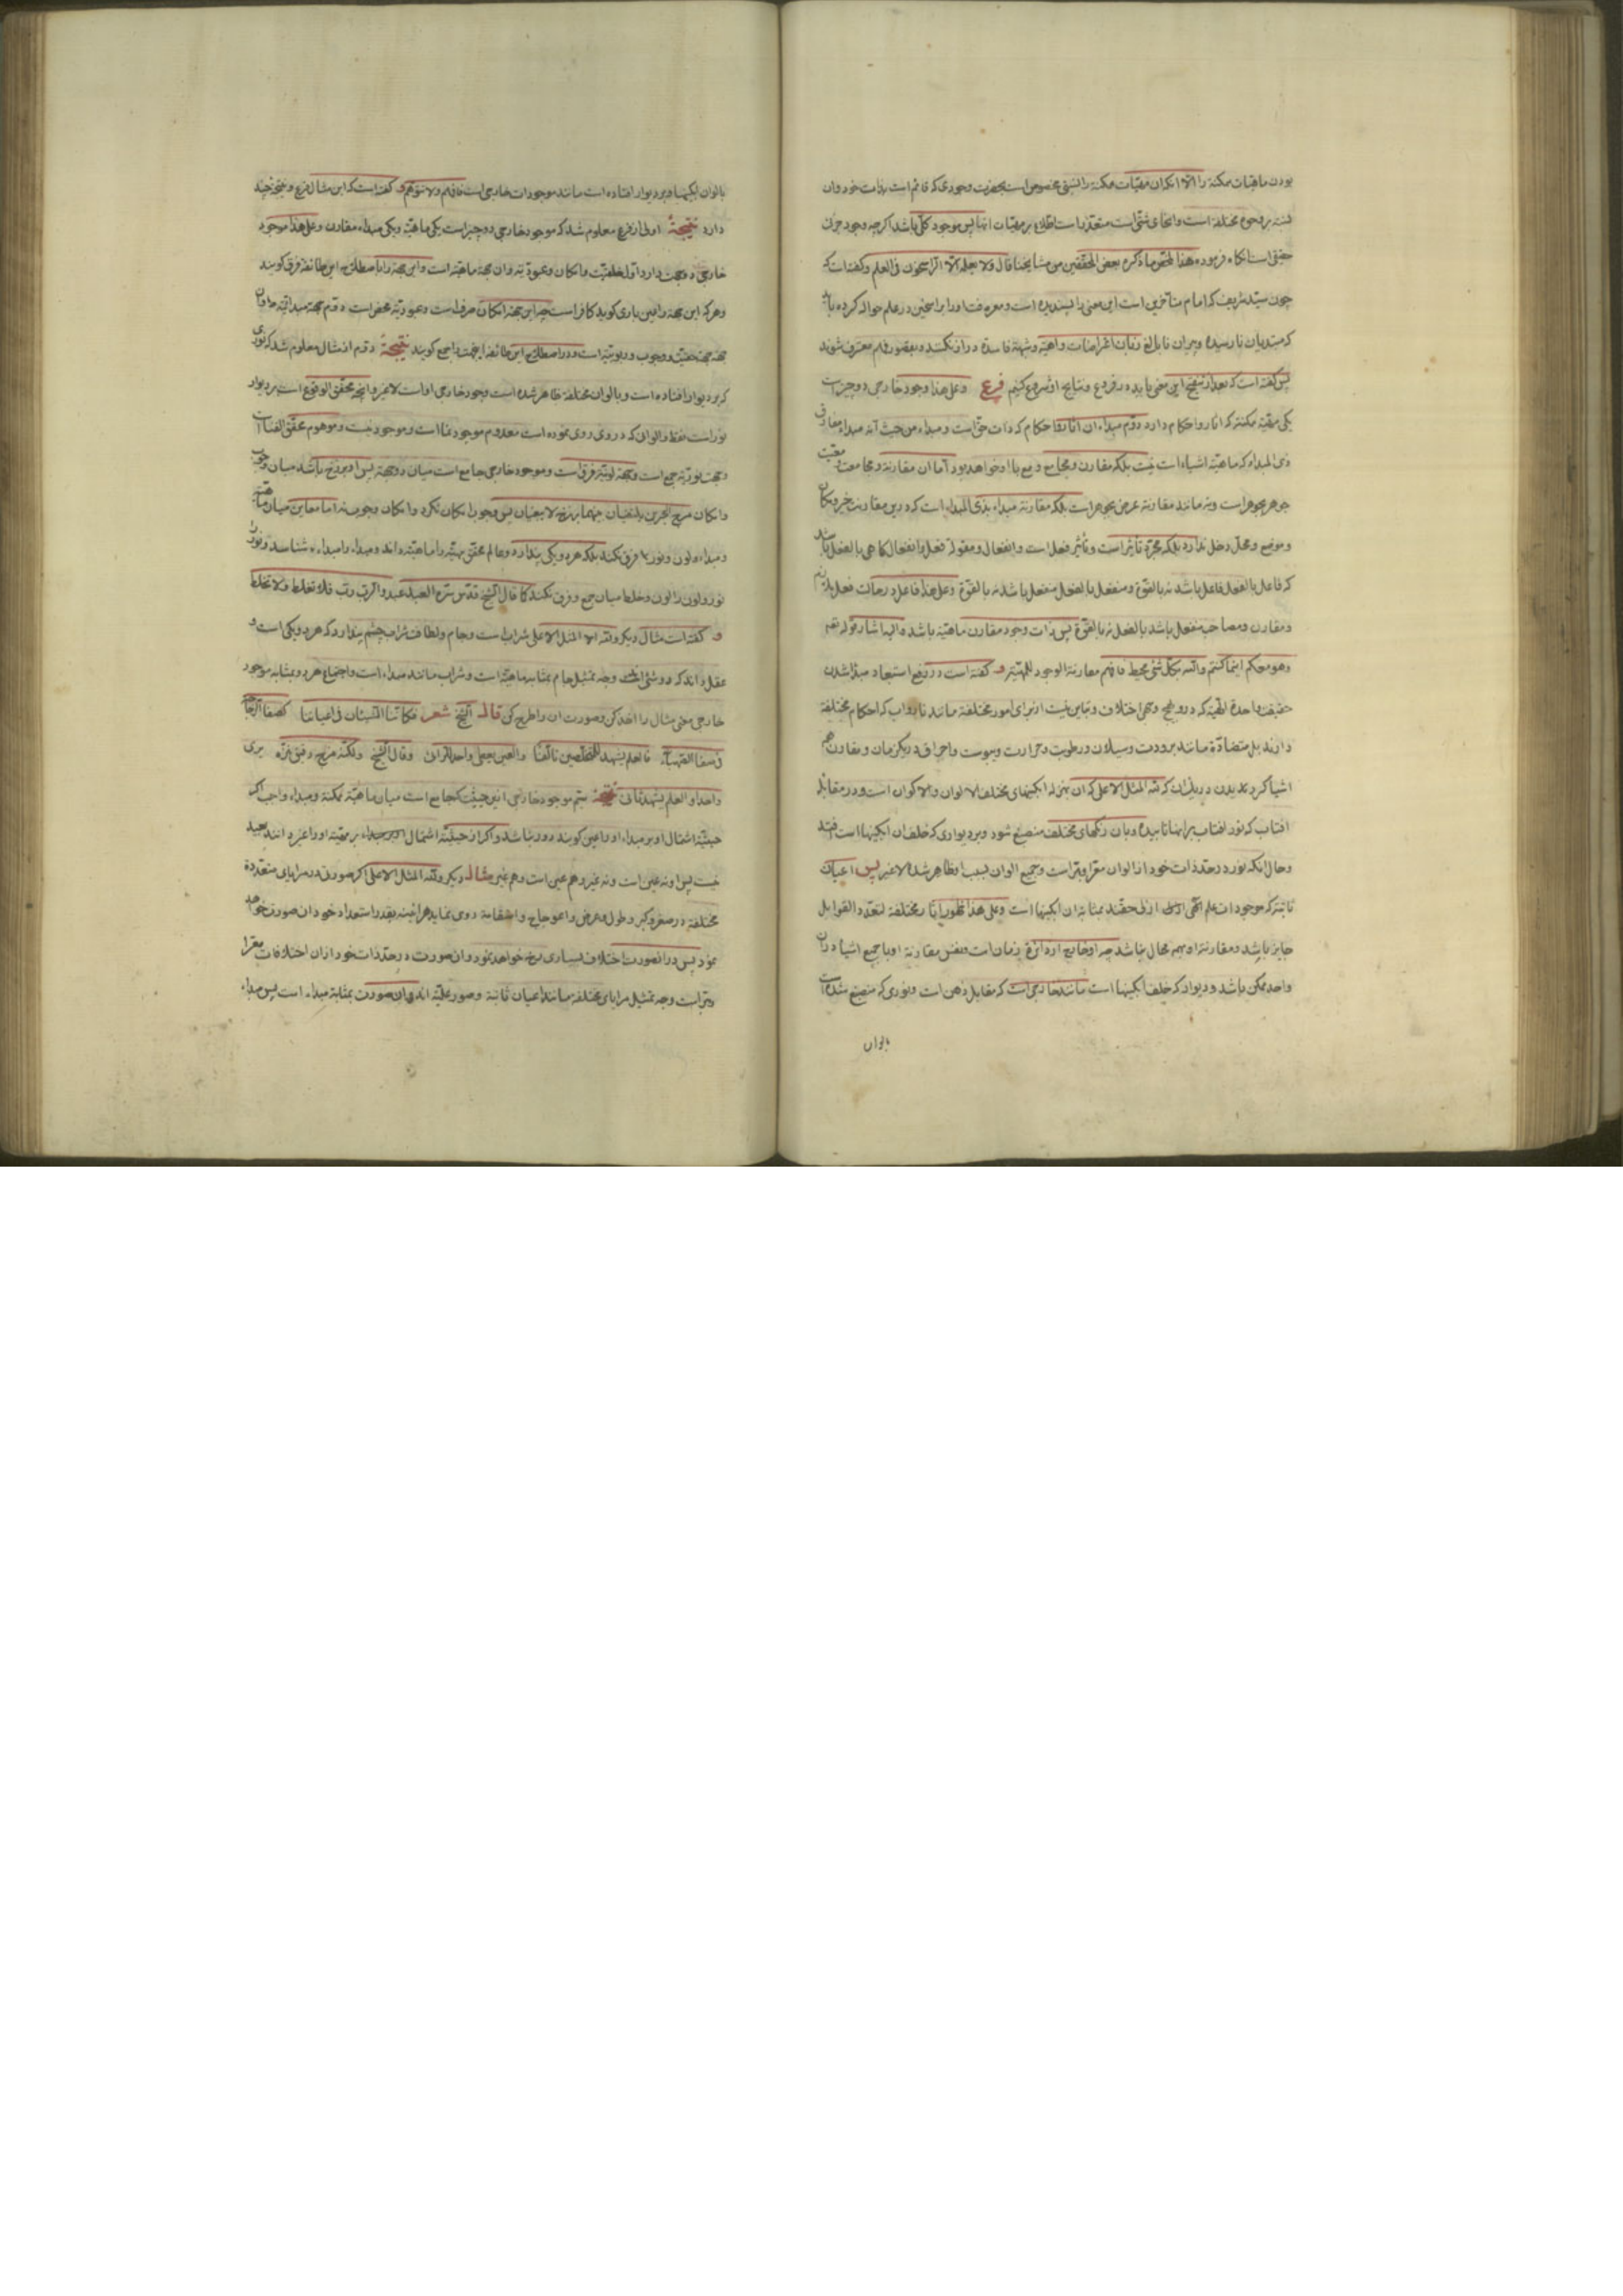 بودن ماهیات ممکنه را الا آنکه آن مهیات ممکنه را نسبتی مخصوص است بحضرت وجودی که قائم است بذات خود و آن
نسبة بر وجوه مختلفة است و انحای شتی است متعذر است اطلاع بر مهیات آنها پس موجود کلی باشد اگرچه وجود جزئی
حقیقی است آنکاه فرموده هذا ملخص ما ذکره بعض المحققین من مشایخنا قال ولا یعلمه الا الراسخون فی العلم و کفته است که
چون سید شریف که امام متأخرین است این معنی را پسندیده است و معرفت او را براسخین در علم حواله کرده باید
که مبتدیان نارسیده و پیران نابالغ زبان اعتراضات واهیه و شبهة فاسدة دراز نکنند و بقصور فهم معترف شوند
پس کفته است که بعد از تنقیح این معنی باید در فروع و نتایج او شروع کنیم فرع وعلی هذا وجود خارجی دو چیز است
یکی مهیة ممکنة که آثار و احکام دارد دوم مبداء آن آثار و احکام که ذات حق است و مبداء من حیث انه مبداء مفارق
ذی المبداء که ماهیة اشیاء است نیست بلکه مقارن و مجامع و مع با او خواهد بود اما آن مقارنة و مجامعت و معیت
جوهر بجوهر است و نه مانند مقارنة عرض بجوهر است بلکه مقارنة مبداء بذی المبداء است که درین مقارنت حیز و مکان
و موضع و محل دخل ندارد بلکه مجرد تأثیر است و تأثیر فعل است و انفعال و مقولة فعل و انفعال کاهی بالفعل باشد
که فاعل بالفعل فاعل باشد نه بالقوة و منفعل بالفعل منفعل باشد نه بالقوة وعلی هذا فاعل در حالت فعل ملازم
و مقارن و مصاحب منفعل باشد بالفعل نه بالقوة پس ذات وجود مقارن ماهیة باشد و الیه اشار قوله تعالی
وهو معکم اینما کنتم والله بکل شئ محیط فافهم مقارنة الوجود للمهیة و کفته است در رفع استبعاد مبداء شدن
حقیقت واحدة الهیة که در وی هیچ وجهی اختلاف و تباین نیست از برای امور مختلفة مانند نار و آب که احکام مختلفة
دارند بل متضادة مانند برودت و سیلان و رطوبت و حرارت و یبوست و احراق در یکزمان و مقارن همه
اشیا کردیدن در یکزمان که لله المثل الاعلی که آن بمنزله آبکینهای مختلف الالوان والاکوان است و در مقابله
آفتاب که نور آفتاب بر آنها تابیده و بان رنکهای مختلف منصبغ شود و بر دیواری که خلف آن آبکینها است افتد
و حال آنکه نور در حد ذات خود از الوان معرا و مبرا است و جمیع الوان بسبب او ظاهر شد لا غیر پس اعیان
ثابته که موجودات علم الهی ازلی حقند بمثابة آن آبکینها است وعلی هذا ظهور آثار مختلفة لتعدد القوابل
جایز باشد و مقارنة او بهمه محال نباشد چه او خارج از دائرة زمان است و نفس مقارنة او با جمیع اشیا در آن
واحد ممکن باشد و دیوار که خلف آبکینها است مانند خارجی است که مقابل ذهن است و نوری که منصبغ شده است
بالوان
بالوان آبکینها و بر دیوار افتاده است مانند موجودات خارجی است فافهم ولا تتوهم و کفته است که این مثال فرع و نتیجه چند
دارد نتیجة اولی از فرع معلوم شد که موجود خارجی دو چیز است یکی ماهیة و یکی مبداء مقارن وعلی هذا موجود
خارجی دو جهت دارد اول خلقیت و امکان و عبودیة و آن جهة ماهیة است و این جهة را باصطلاح این طائفة فرق کویند
و هرکه این جهة را عین باری کوید کافر است چه این جهة امکان صرف است و عبودیة محض است دوم جهة مبدائیة و آن
جهة حقیت و وجوب و ربوبیة است و در اصطلاح این طائفه این جهت را جمع کویند نتیجة دوم از مثال معلوم شد که نوری
که بر دیوار افتاده است و بالوان مختلفة ظاهر شده است وجود خارجی او است لا غیر و آنچه محقق الوقوع است بر دیوار
نور است فقط و الوان که در وی روی نموده است معدوم موجودنما است و موجود نیست و موهوم محقق الفنا است
و جهت نوریة جمع است و جهة لونیة فرق است و موجود خارجی جامع است میان دو جهة پس او برزخ باشد میان وجوب
و امکان مرج البحرین یلتقیان بینهما برزخ لا یبغیان پس وجوب امکان نکرد و امکان وجوب نه اما معاین میان ماهیة
و مبداء و لون و نور فرق نکند بلکه هر دو یکی پندارد و عالم محقق مهیة را ماهیة داند و مبداء را مبداء شناسد و نور را
نور و لون را لون و خلط میان جمع و فرق نکند کما قال الشیخ قدس سره العبد عبد والرب رب فلا تغلط ولا تخلط
و کفته است مثال دیکر ولله المثل الاعلی شراب است و جام و لطافت شراب چشم پندارد که هر دو یکی است و
عقل داند که دو شئ است وجه تمثیل جام بمثابه ماهیة است و شراب مانند مبداء است و اجتماع هر دو بمثابه موجود
خارجی معنی مثال را اخذ کن و صورت آن را طرح کن قال الشیخ شعر فکأننا المتلبسان فی اعیاننا کصفا الزجاجة
فی صفا الصهباء فالعلم یشهد للمخلصین تألفا والعین یعطی واحدا للرائی وقال الشیخ ولکنه مزج رقیق منزه یری
واحدا والعلم یشهد ثانی نتیجة سیم موجود خارجی ازین حیثیت که جامع است میان ماهیة ممکنة و مبداء واجب اکر
حیثیة اشتمال او بر مبداء او را عین کویند دور نباشد و اکر از حیثیة اشتمال او بر مهیة او را غیر دانند بعید
نیست پس او نه عین است و نه غیر و هم عین است و هم غیر مثال دیکر ولله المثل الاعلی اکر صورتی در مرایای متعددة
مختلفة در صغر و کبر و طول و عرض و اعوجاج و استقامة روی نماید هر آینه بقدر استعداد خود آن صورت خواهد
نمود پس در آنصورت اختلاف بسیاری رخ خواهد نمود و آن صورت در حد ذات خود از آن اختلافات معرا
و مبرا است وجه تمثیل مرایای مختلفه مانند اعیان ثابتة و صور علمیة اند و آن صورت بمثابة مبداء است پس مبداء